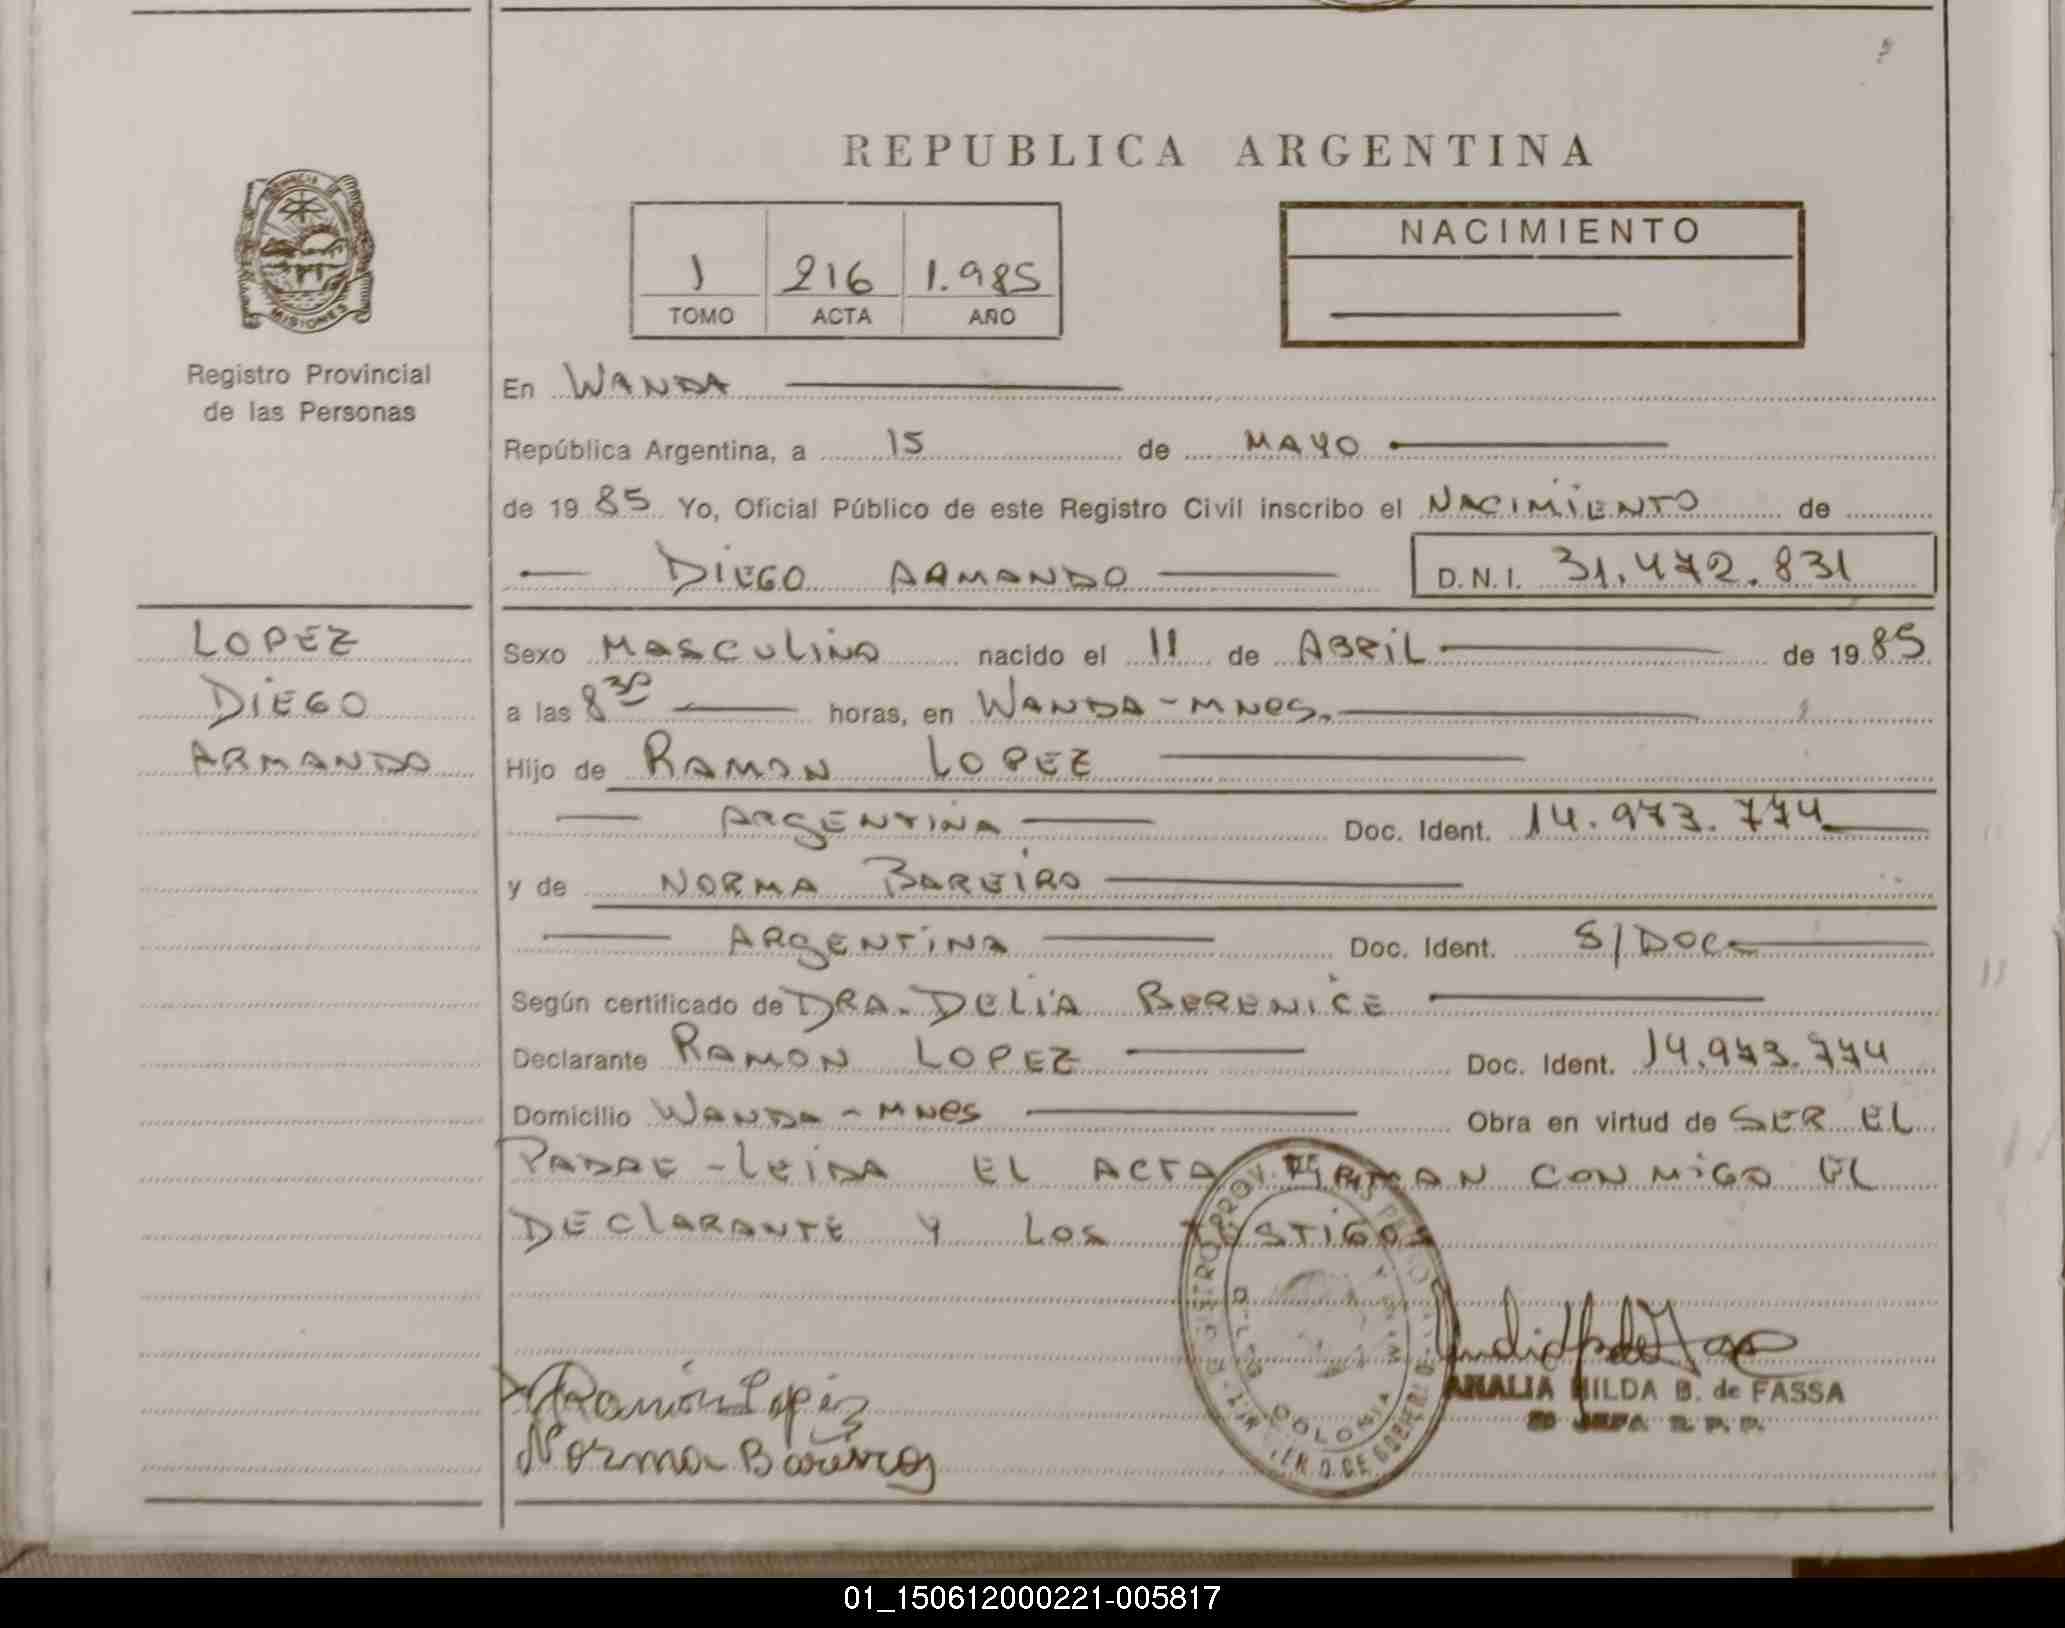 REPUBLICA ARGENTINA
NACIMIENTO
1 216 1.985
TOMO ACTA AÑO
MISIONES
Registro Provincial
de las Personas
En WANDA
República Argentina, a 15 de MAYO
de 19 85 Yo, Oficial Público de este Registro Civil inscribo el NACIMIENTO de
DIEGO ARMANDO D.N.I. 31.472.831
LOPEZ
DIEGO
ARMANDO
Sexo MASCULINO nacido el 11 de ABRIL de 19 85
a las 8 30 horas, en WANDA - MNES.
Hijo de RAMON LOPEZ
ARGENTINA Doc. Ident. 14.973.774
y de NORMA BAREIRO
ARGENTINA Doc. Ident. S/DOC
Según certificado de DRA. DELIA BERENICE
Declarante RAMON LOPEZ Doc. Ident. 14.973.774
Domicilio WANDA - MNES Obra en virtud de SER EL
PADRE - LEIDA EL ACTA FIRMAN CONMIGO EL
DECLARANTE Y LOS TESTIGOS
COLONIA
Ramón Lopez
Norma Bareiro
ANALIA HILDA B. de FASSA
JEFA R. P. P.
01_150612000221-005817